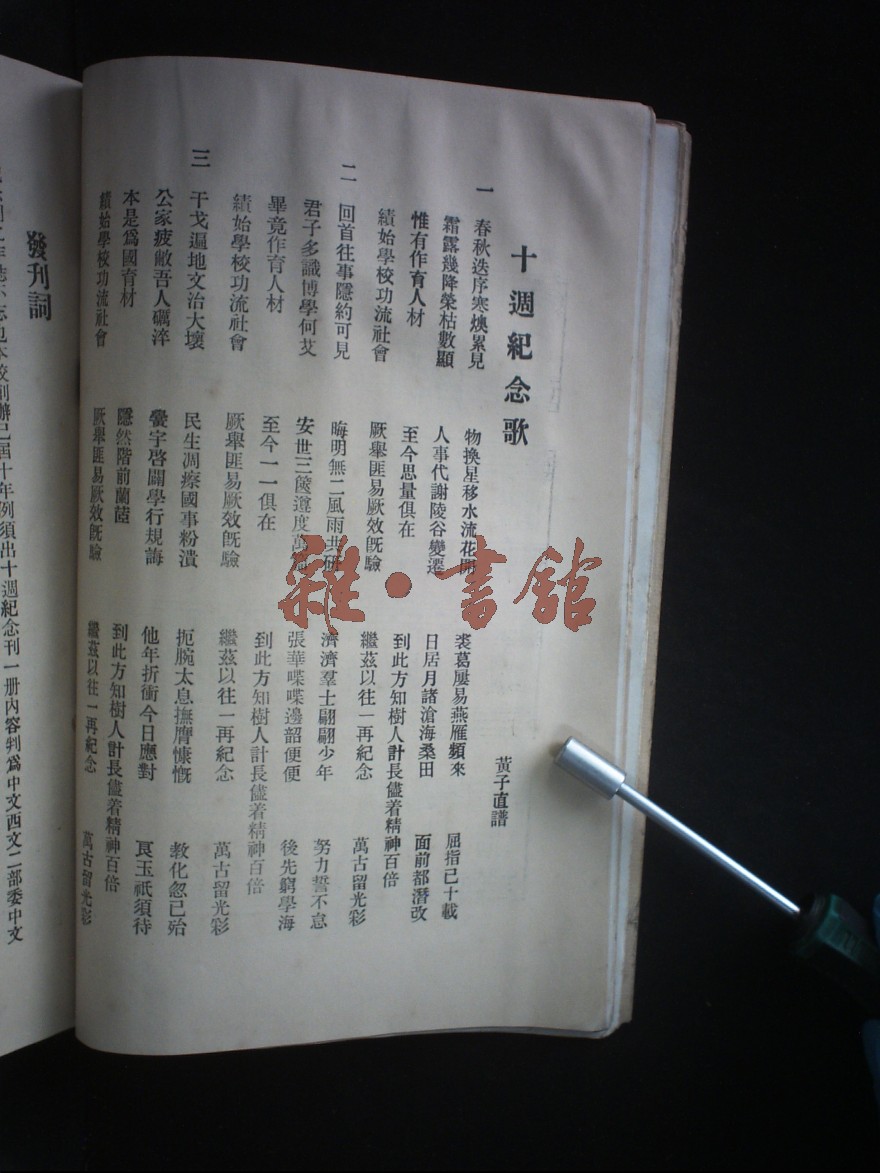 十週紀念歌
黃子直譜
一 春秋迭序寒燠累見 物換星移水流花開 裘葛屢易燕雁頻來 屈指已十載
霜露幾降榮枯數顯 人事代謝陵谷變遷 日居月諸滄海桑田 面前都潛改
惟有作育人材 至今思量俱在 到此方知樹人計長儘着精神百倍
績始學校功流社會 厥舉匪易厥效旣驗 繼茲以往一再紀念 萬古留光彩
二 回首往事隱約可見 晦明無二風雨共研 濟濟羣士翩翩少年 努力誓不怠
君子多識博學何艾 安世三篋遵度萬 張華喋喋邊韶便便 後先窮學海
畢竟作育人材 至今一一俱在 到此方知樹人計長儘着精神百倍
績始學校功流社會 厥舉匪易厥效旣驗 繼茲以往一再紀念 萬古留光彩
三 干戈遍地文治大壞 民生凋瘵國事粉潰 扼腕太息撫膺慷慨 教化忽已殆
公家疲敝吾人礪淬 黌宇啓闢學行規誨 他年折衝今日應對 良玉祇須待
本是爲國育材 隱然階前蘭茝 到此方知樹人計長儘着精神百倍
績始學校功流社會 厥舉匪易厥效旣驗 繼茲以往一再紀念 萬古留光彩
發刊詞
也本校創辦已屆十年例須出十週紀念刊一册內容判爲中文西文二部委中文
雜·書館